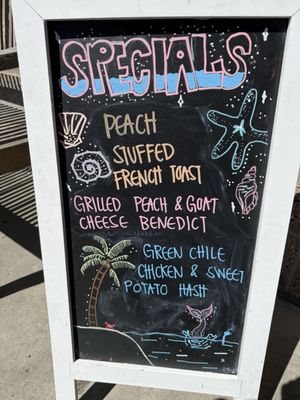 SPECIALS
PEACH
STUFFED
FRENCH TOAST
GRILLED PEACH & GOAT
CHEESE BENEDICT
GREEN CHILE
CHICKEN & SWEET
POTATO HASH